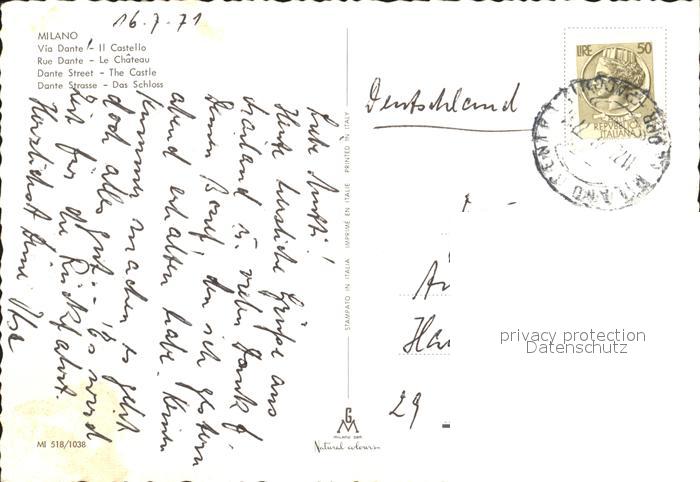 16.7.71
MILANO
Via Dante - Il Castello
Rue Dante - Le Château
Dante Street - The Castle
Dante Strasse - Das Schloss
Liebe Mutti!
Heute herzliche Grüße aus
Mailand u. vielen Dank f.
Deinen Brief, den ich gestern
abend erhalten habe. Keinen
Kummer machen es geht
doch alles gut - Es wird
Zeit für die Rückfahrt.
Herzlichst Deine Ilse
MI 518/1038
STAMPATO IN ITALIA IMPRIMÉ EN ITALIE PRINTED IN ITALY
GM
MILANO
Natural colours
LIRE 50
REPUBBLICA
ITALIANA
MILANO CENTRO
Deutschland
Ha
29
privacy protection
Datenschutz